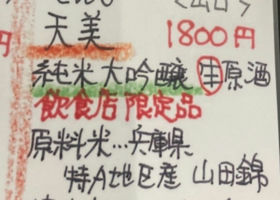 〈山口〉
天美 1800円
純米大吟醸 生原酒
飲食店限定品
原料米…兵庫県
特A地区産 山田錦